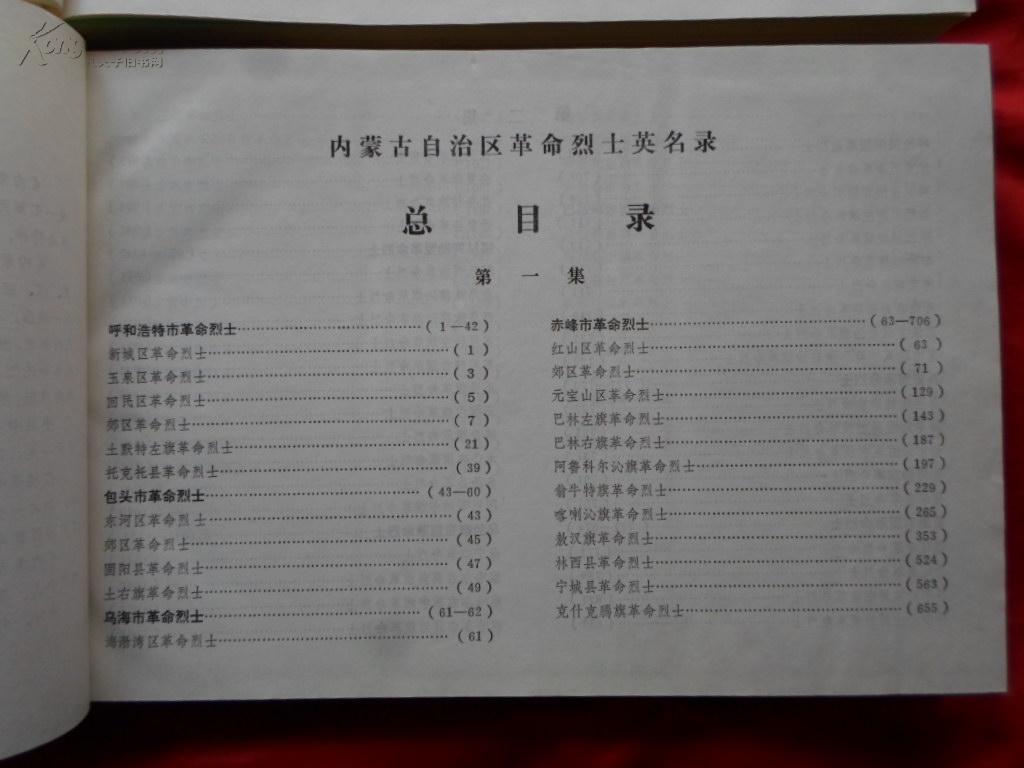 内蒙古自治区革命烈士英名录
总目录
第一集
呼和浩特市革命烈士……………………(1—42)
新城区革命烈士……………………(1)
玉泉区革命烈士……………………(3)
回民区革命烈士……………………(5)
郊区革命烈士……………………(7)
土默特左旗革命烈士……………………(21)
托克托县革命烈士……………………(39)
包头市革命烈士……………………(43—60)
东河区革命烈士……………………(43)
郊区革命烈士……………………(45)
固阳县革命烈士……………………(47)
土右旗革命烈士……………………(49)
乌海市革命烈士……………………(61—62)
海渤湾区革命烈士……………………(61)
赤峰市革命烈士……………………(63—706)
红山区革命烈士……………………(63)
郊区革命烈士……………………(71)
元宝山区革命烈士……………………(129)
巴林左旗革命烈士……………………(143)
巴林右旗革命烈士……………………(187)
阿鲁科尔沁旗革命烈士……………………(197)
翁牛特旗革命烈士……………………(229)
喀喇沁旗革命烈士……………………(265)
敖汉旗革命烈士……………………(353)
林西县革命烈士……………………(524)
宁城县革命烈士……………………(563)
克什克腾旗革命烈士……………………(655)